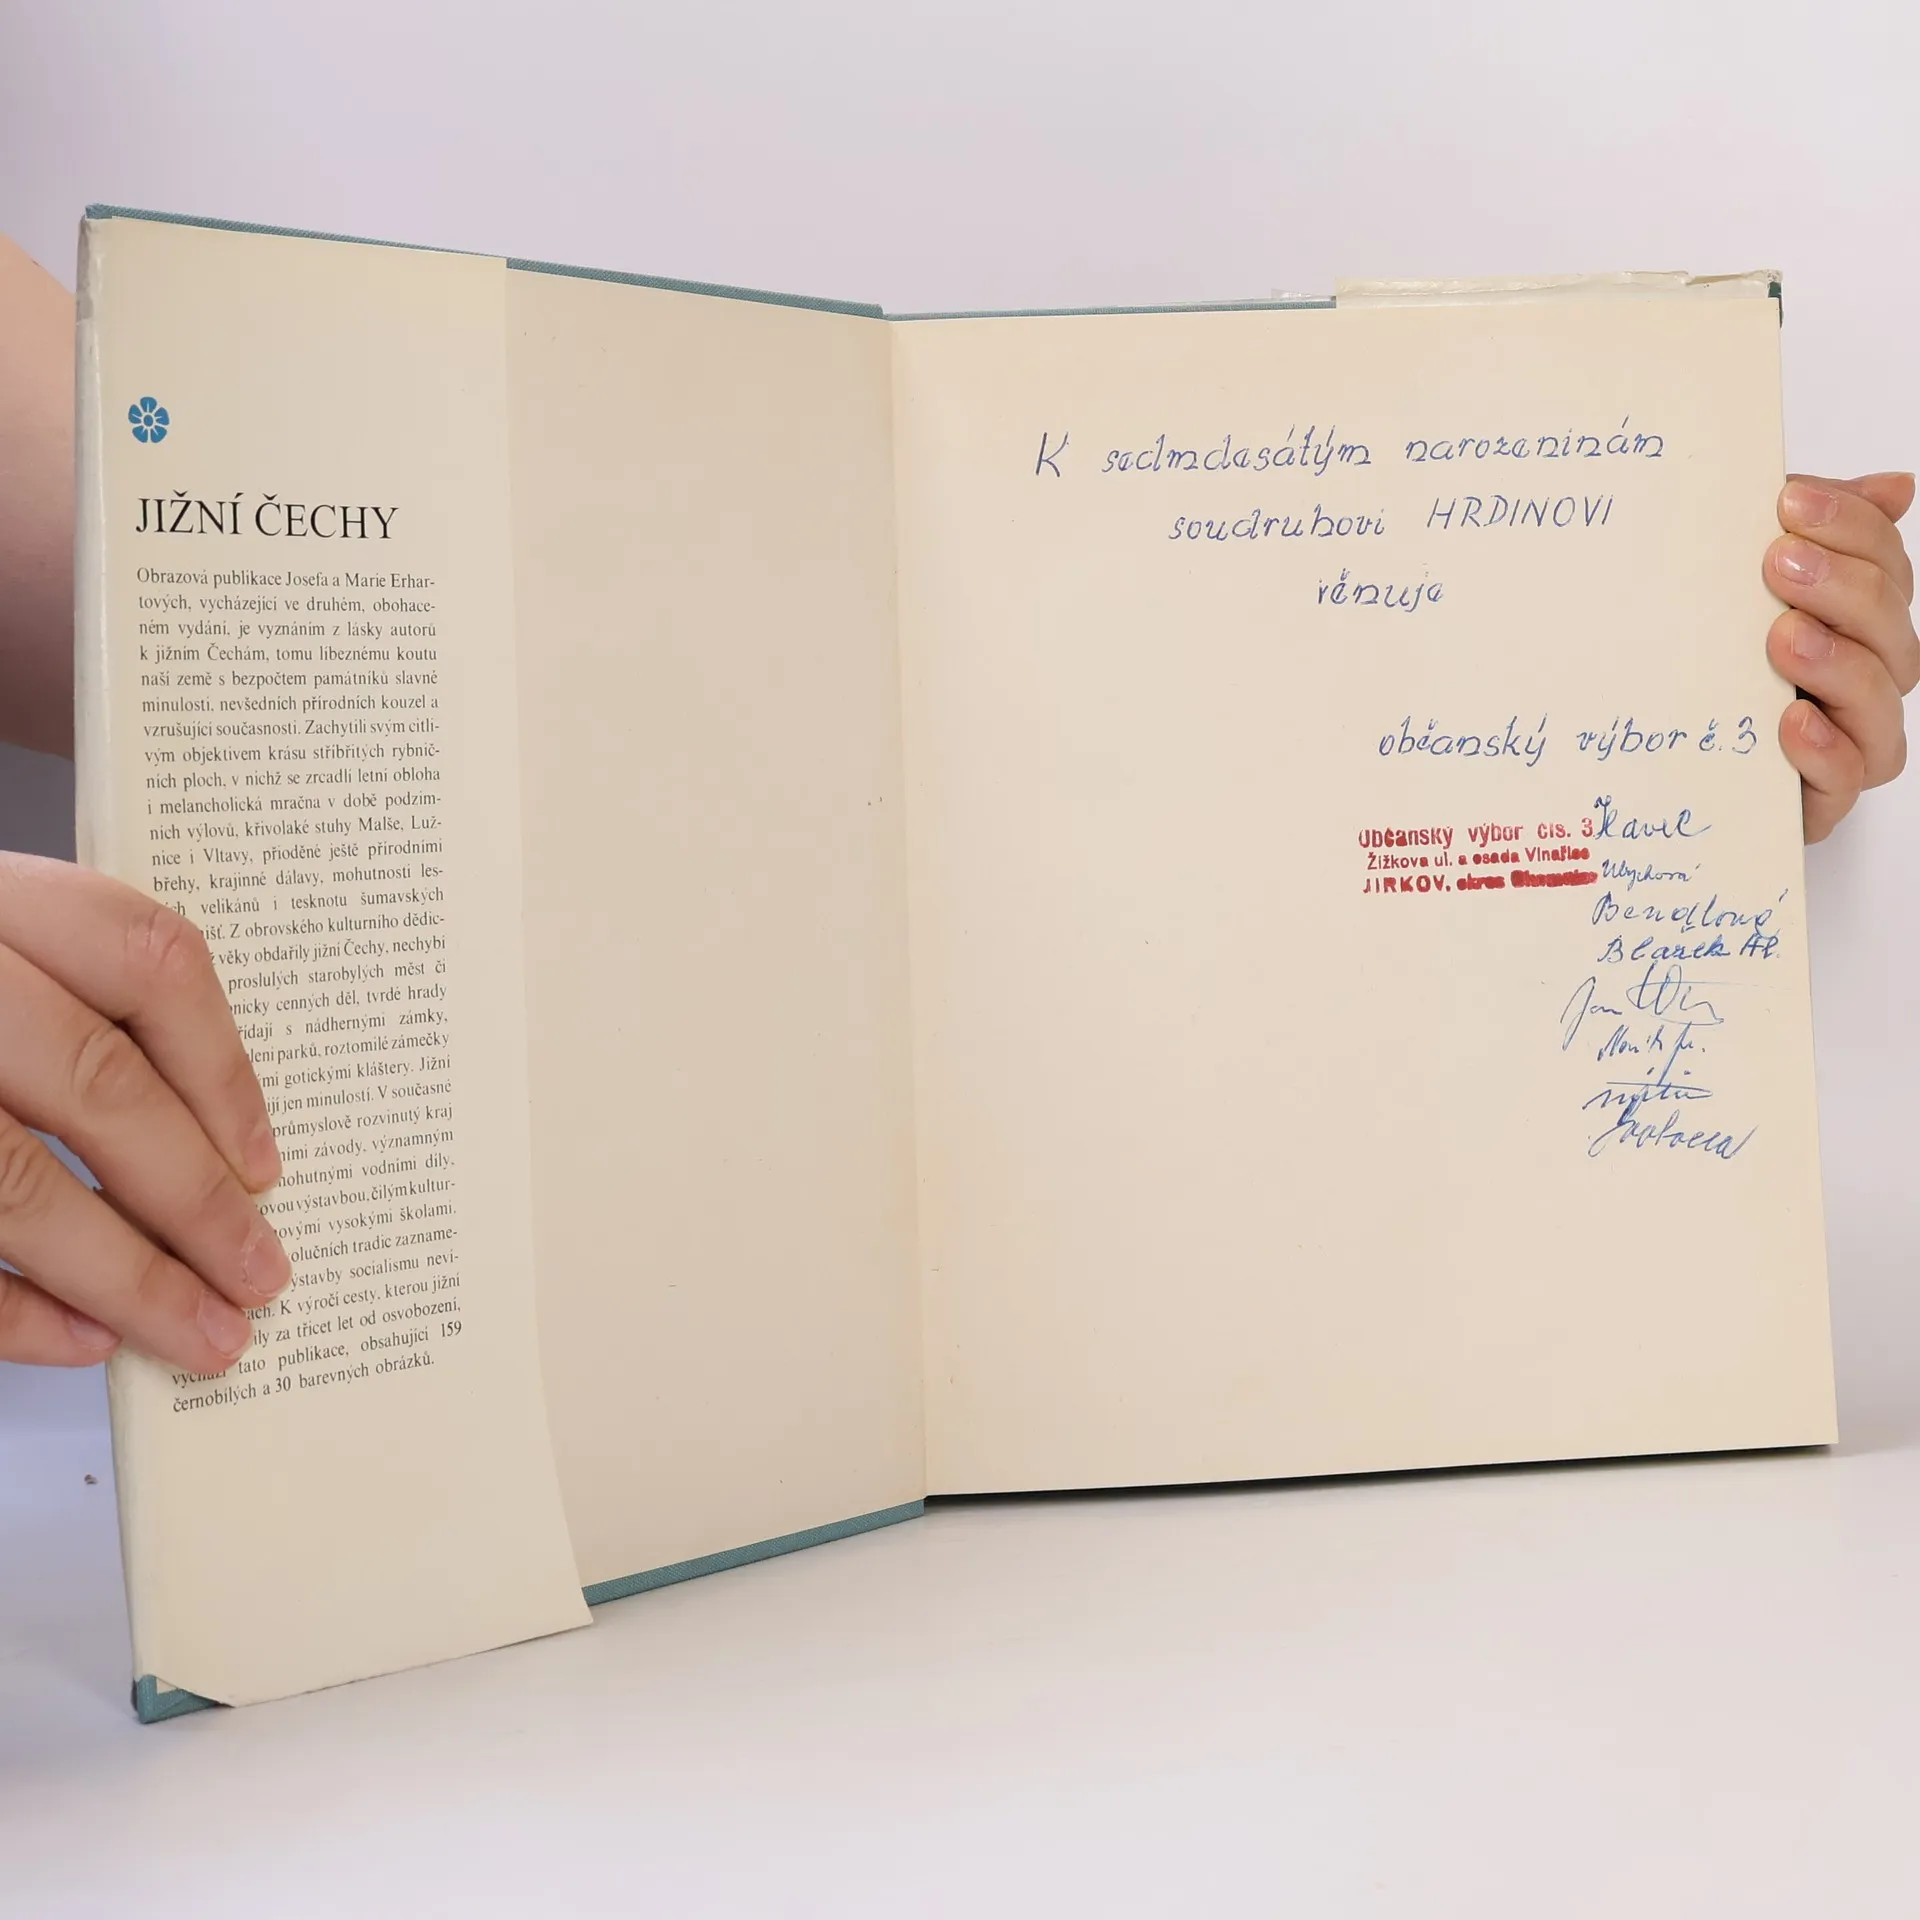 JIŽNÍ ČECHY
Obrazová publikace Josefa a Marie Erhar-
tových, vycházející ve druhém, obohace-
ném vydání, je vyznáním z lásky autorů
k jižním Čechám, tomu líbeznému koutu
naší země s bezpočtem památníků slavné
minulosti, nevšedních přírodních kouzel a
vzrušující současnosti. Zachytili svým citli-
vým objektivem krásu stříbřitých rybnič-
ních ploch, v nichž se zrcadlí letní obloha
i melancholická mračna v době podzim-
ních výlovů, křivolaké stuhy Malše, Luž-
nice i Vltavy, přioděné ještě přírodními
břehy, krajinné dálavy, mohutnosti les-
velikánů i tesknotu šumavských
išť. Z obrovského kulturního dědic-
ž věky obdařily jižní Čechy, nechybí
proslulých starobylých měst či
nicky cenných děl, tvrdé hrady
řídají s nádhernými zámky,
leni parků, roztomilé zámečky
mi gotickými kláštery. Jižní
ijí jen minulostí. V současné
průmyslově rozvinutý kraj
ními závody, významným
mohutnými vodními díly,
ovou výstavbou, čilým kultur-
ovými vysokými školami.
olučních tradic zazname-
ýstavby socialismu neví-
ách. K výročí cesty, kterou jižní
ily za třicet let od osvobození,
vychází tato publikace, obsahující 159
černobílých a 30 barevných obrázků.
K sedmdesátým narozeninám
soudruhovi HRDINOVI
věnuje
občanský výbor č. 3
Občanský výbor čís. 3
Žižkova ul. a osada Vinařice
JIRKOV, okres Chomutov
Havel
Bendlová
Blažek
Jan